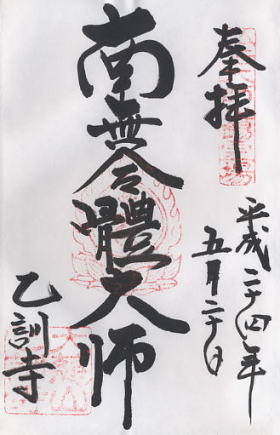 奉拝
平成二十四年
五月二十日
南無合體大师
乙訓寺